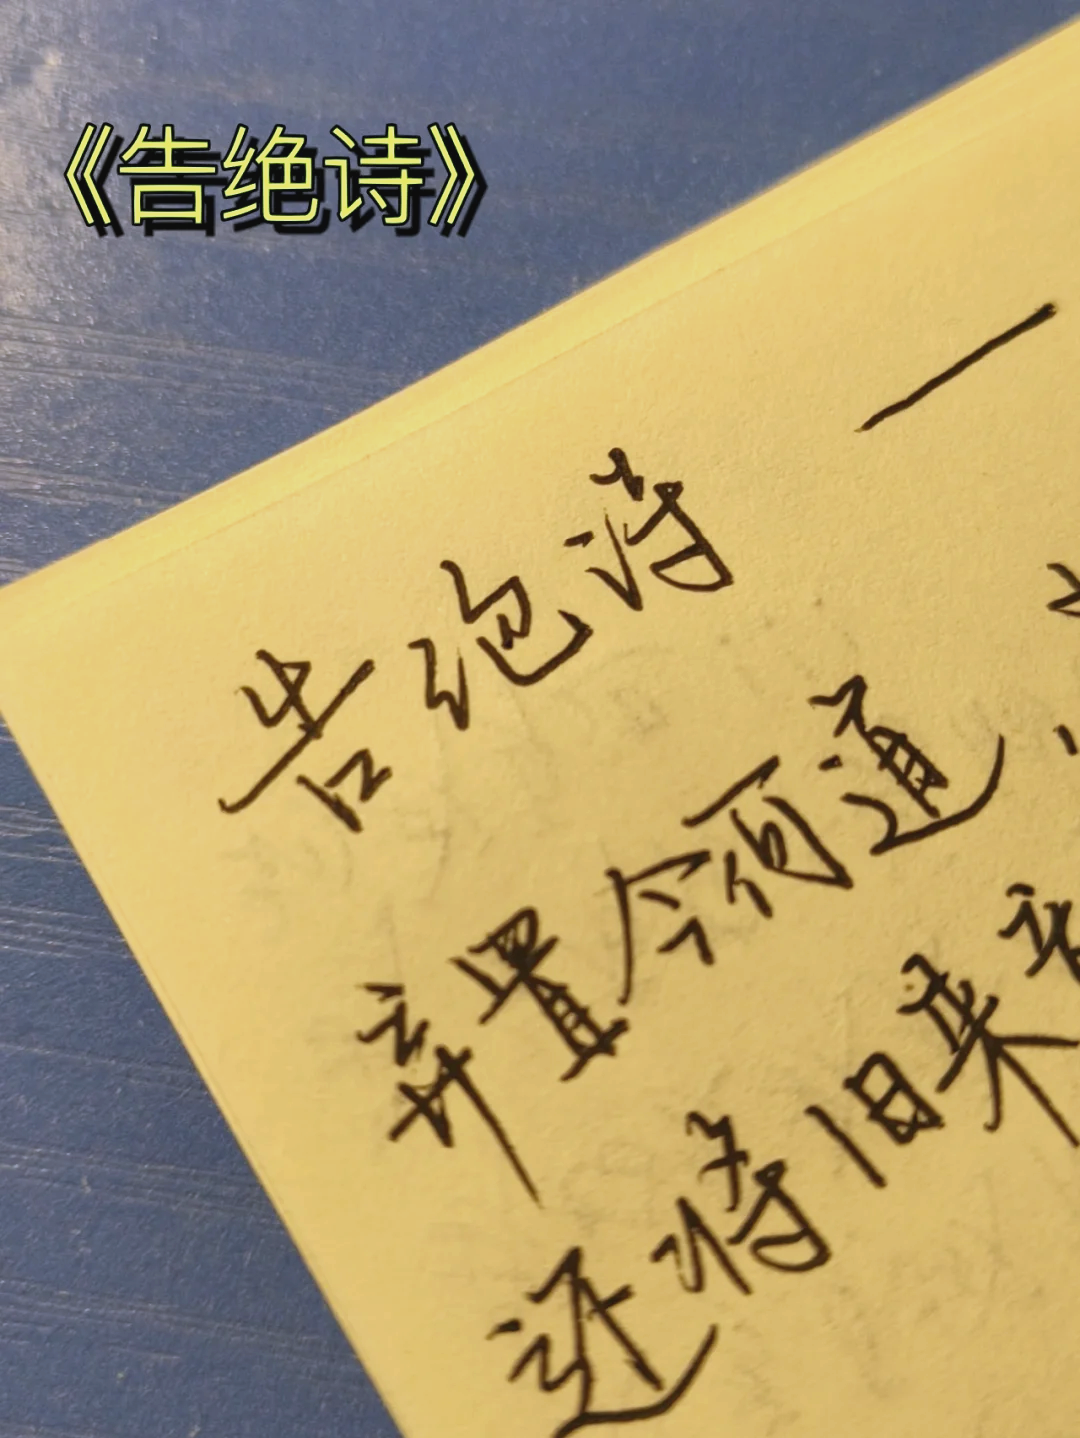 《告绝诗》
告绝诗
一
弃置今何道
还将旧来